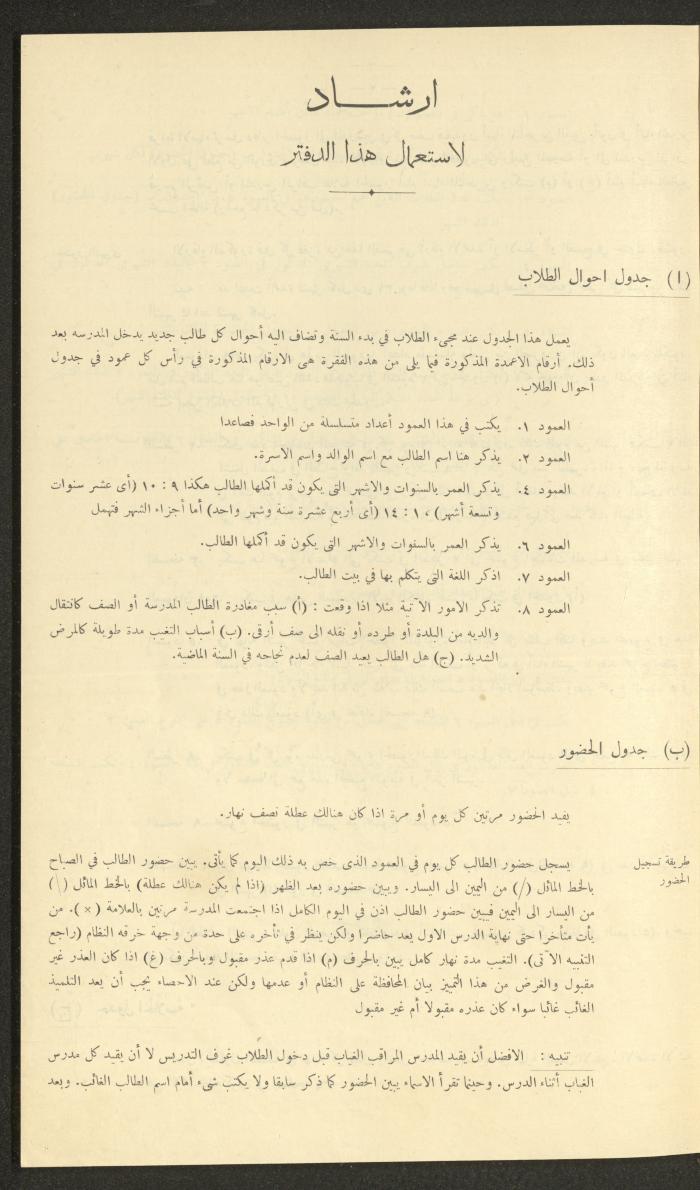 ارشـــاد
لاستعمال هذا الدفتر
(ا) جدول احوال الطلاب
يعمل هذا الجدول عند مجيء الطلاب في بدء السنة وتضاف اليه أحوال كل طالب جديد يدخل المدرسه بعد
ذلك. أرقام الاعمدة المذكورة فيما يلى من هذه الفقرة هى الارقام المذكورة في رأس كل عمود في جدول
أحوال الطلاب.
العمود ١. يكتب في هذا العمود أعداد متسلسلة من الواحد فصاعدا
العمود ٢. يذكر هنا اسم الطالب مع اسم الوالد واسم الاسرة.
العمود ٤. يذكر العمر بالسنوات والاشهر التى يكون قد أكملها الطالب هكذا ٩ : ١٠ (أى عشر سنوات
وتسعة أشهر) ، ١ : ١٤ (أى أربع عشرة سنة وشهر واحد) أما أجزاء الشهر فتهمل
العمود ٦. يذكر العمر بالسنوات والاشهر التى يكون قد أكملها الطالب.
العمود ٧. اذكر اللغة التى يتكلم بها في بيت الطالب.
العمود ٨. تذكر الامور الآتية مثلا اذا وقعت : (أ) سبب مغادرة الطالب المدرسة أو الصف كانتقال
والديه من البلدة أو طرده أو نقله الى صف أرقى. (ب) أسباب التغيب مدة طويلة كالمرض
الشديد. (ج) هل الطالب يعيد الصف لعدم نجاحه في السنة الماضية.
(ب) جدول الحضور
يفيد الحضور مرتين كل يوم أو مرة اذا كان هنالك عطلة نصف نهار.
طريقة تسجيل
الحضور
يسجل حضور الطالب كل يوم في العمود الذى خص به ذلك اليوم كما يأتى. يبين حضور الطالب في الصباح
بالخط المائل (/) من اليمين الى اليسار. ويبين حضوره بعد الظهر (اذا لم يكن هنالك عطلة) بالخط المائل (\)
من اليسار الى اليمين فيبين حضور الطالب اذن في اليوم الكامل اذا اجتمعت المدرسة مرتين بالعلامة (×). من
يأت متأخرا حتى نهاية الدرس الاول يعد حاضرا ولكن ينظر في تأخره على حدة من وجهة خرقه النظام (راجع
التنبيه الآتى). التغيب مدة نهار كامل يبين بالحرف (م) اذا قدم عذر مقبول وبالحرف (غ) اذا كان العذر غير
مقبول والغرض من هذا التمييز بيان المحافظة على النظام أو عدمها ولكن عند الاحصاء يجب أن يعد التلميذ
الغائب غائبا سواء كان عذره مقبولا أم غير مقبول
تنبيه : الافضل أن يقيد المدرس المراقب الغياب قبل دخول الطلاب غرف التدريس لا أن يقيد كل مدرس
الغياب أثناء الدرس. وحينما تقرأ الاسماء يبين الحضور كما ذكر سابقا ولا يكتب شىء أمام اسم الطالب الغائب. وبعد